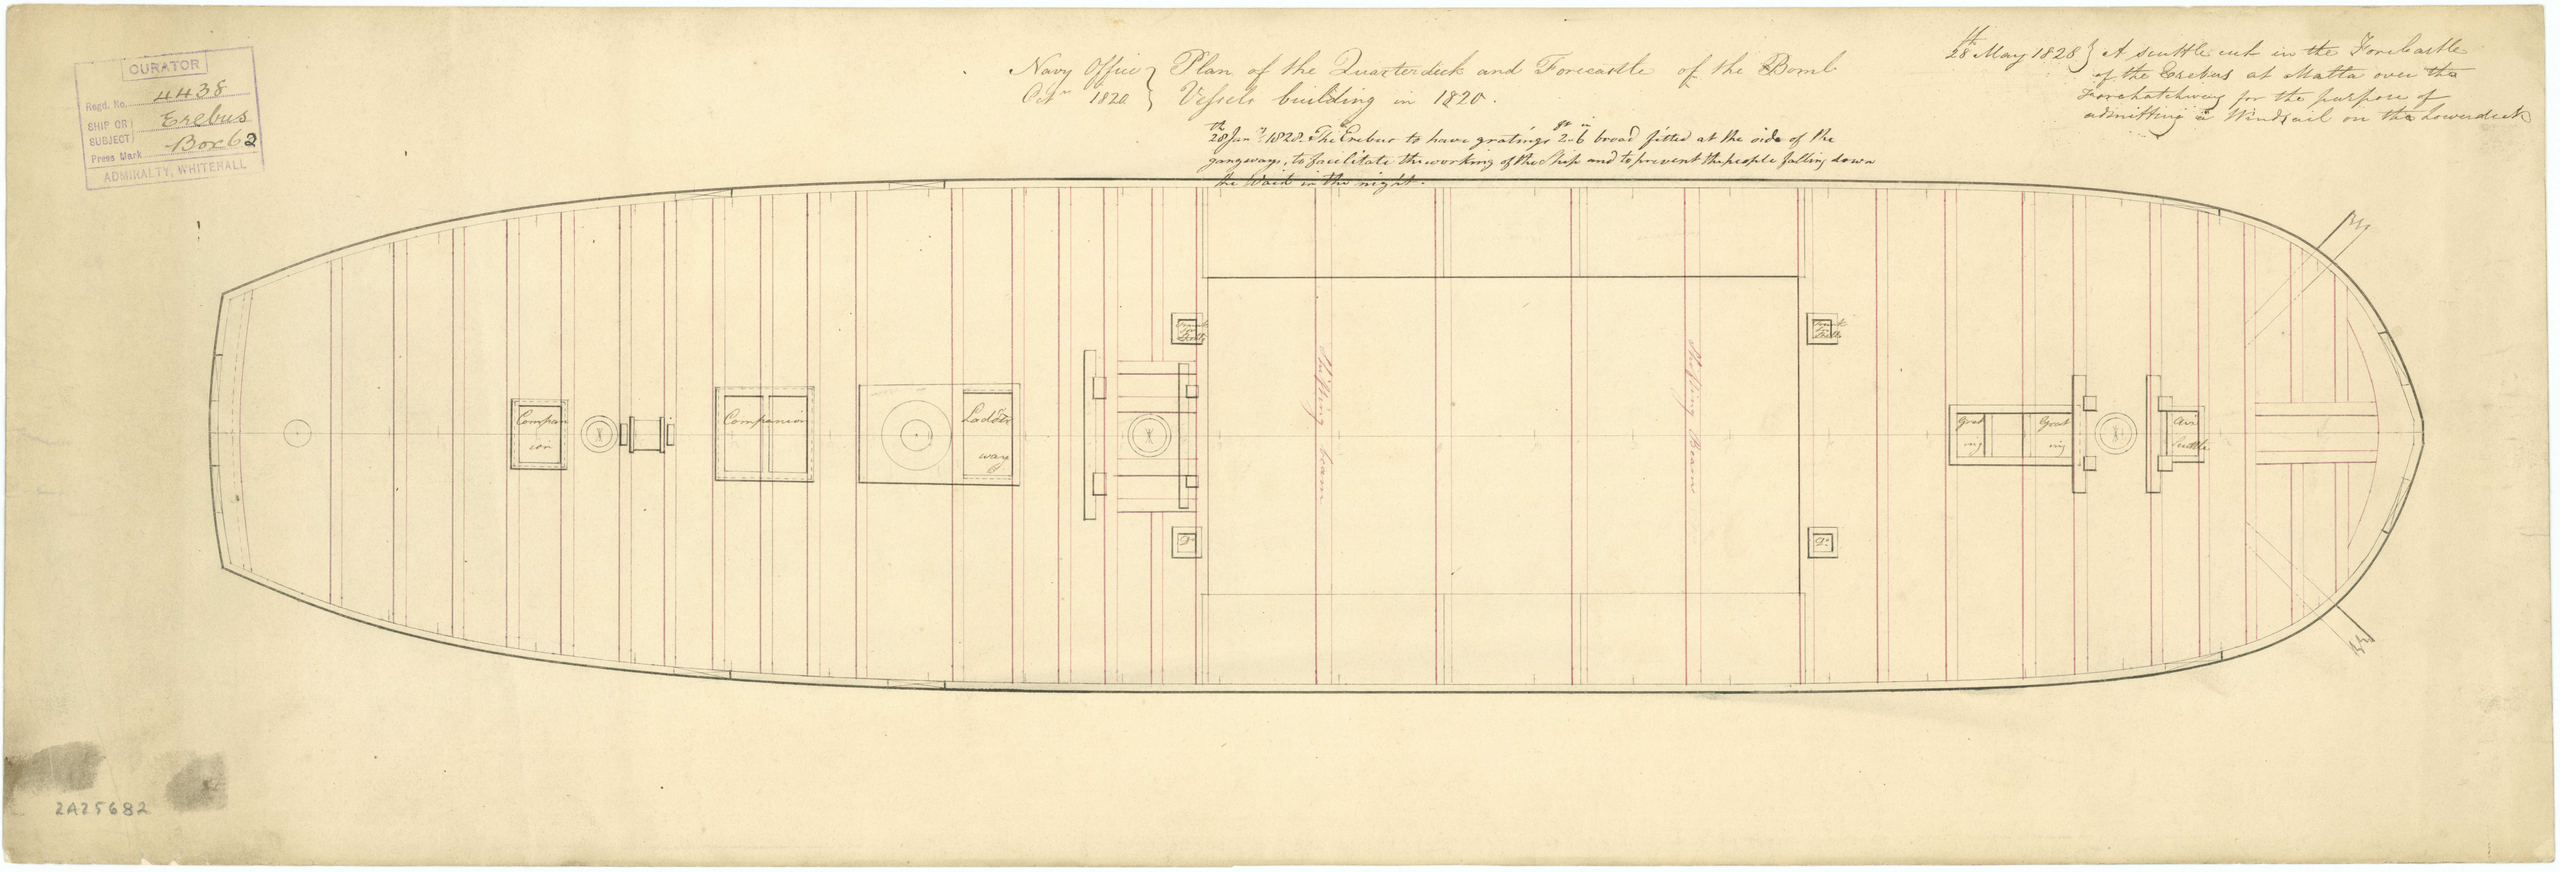 CURATOR
Regd. No. 4438
SHIP OR Erebus
SUBJECT
Press Mark Box 62
ADMIRALTY, WHITEHALL
Navy Office } Plan of the Quarterdeck and Forecastle of the Bomb
1820 } Vessels building in 1820.
28th Jany. 1828. The Erebus to have gratings 2ft..6in broad fitted at the side of the
gangways, to facilitate the working of the Ship and to prevent the people falling down
the Waist in the night.
28th May 1828 } A scuttle cut in the Forecastle
of the Erebus at Malta over the
Forehatchway for the purpose of
admitting a Windsail on the Lowerdeck
Compan
ion
Companion
Ladder
way
Trunk
for
D°.
Shifting beam
Shifting Beam
Trunk
for
D°.
Grat
ing
Grat
ing
Air
Scuttle
2A25682